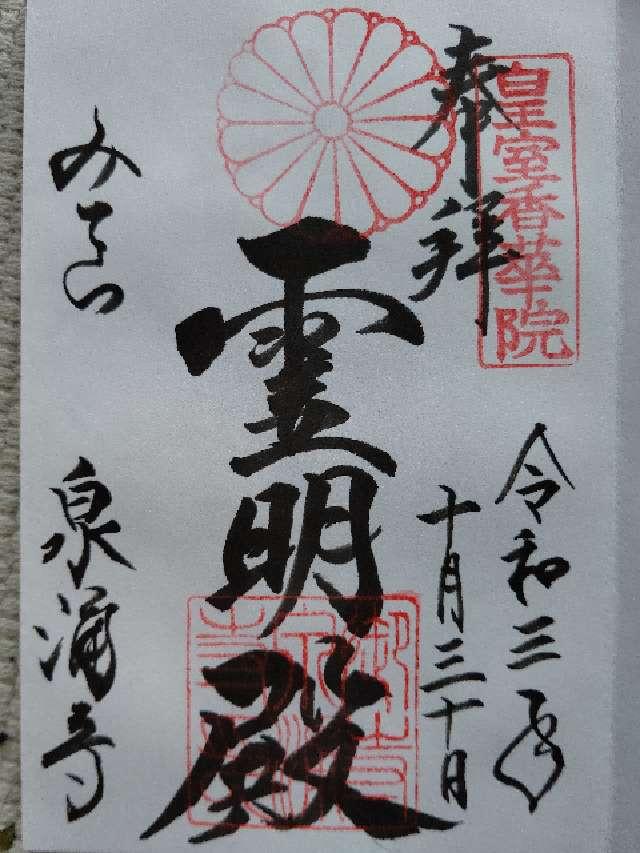 皇室香華院
奉拝
令和三年
十月三十日
霊明殿
みてら
泉涌寺